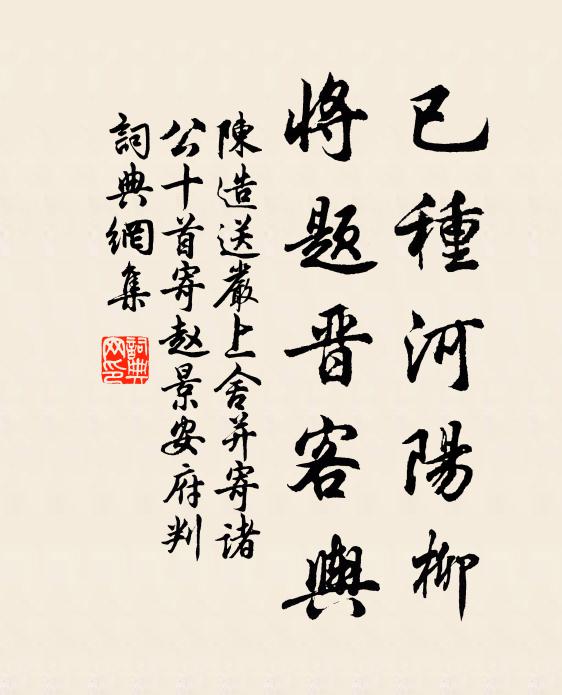 已種河陽柳
將題晋客輿
陳造送嚴上舍并寄諸
公十首寄赵景安府判
詞典網集
詞典
网印